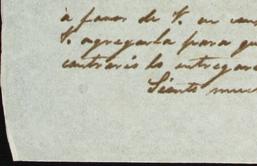 á favor de V. un
V. agregarla para
contrario lo entregar
Siento